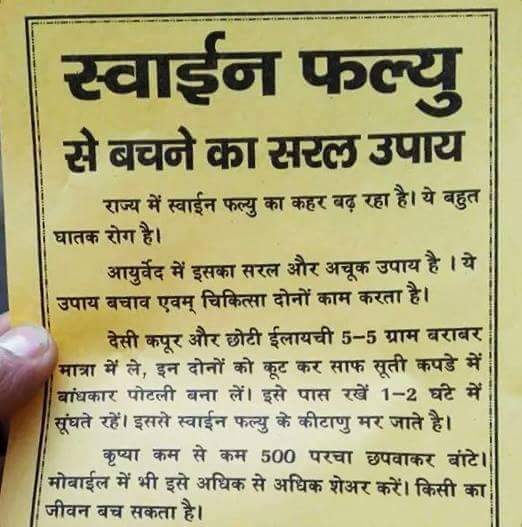 स्वाईन फल्यु
से बचने का सरल उपाय
राज्य में स्वाईन फल्यु का कहर बढ़ रहा है। ये बहुत
घातक रोग है।
आयुर्वेद में इसका सरल और अचूक उपाय है । ये
उपाय बचाव एवम् चिकित्सा दोनों काम करता है।
देसी कपूर और छोटी ईलायची 5-5 ग्राम बराबर
मात्रा में ले, इन दोनों को कूट कर साफ सूती कपडे में
बांधकार पोटली बना लें। इसे पास रखें 1-2 घंटे में
सूंघते रहें। इससे स्वाईन फल्यु के कीटाणु मर जाते है।
कृप्या कम से कम 500 परचा छपवाकर बांटे।
मोबाईल में भी इसे अधिक से अधिक शेअर करें। किसी का
जीवन बच सकता है।